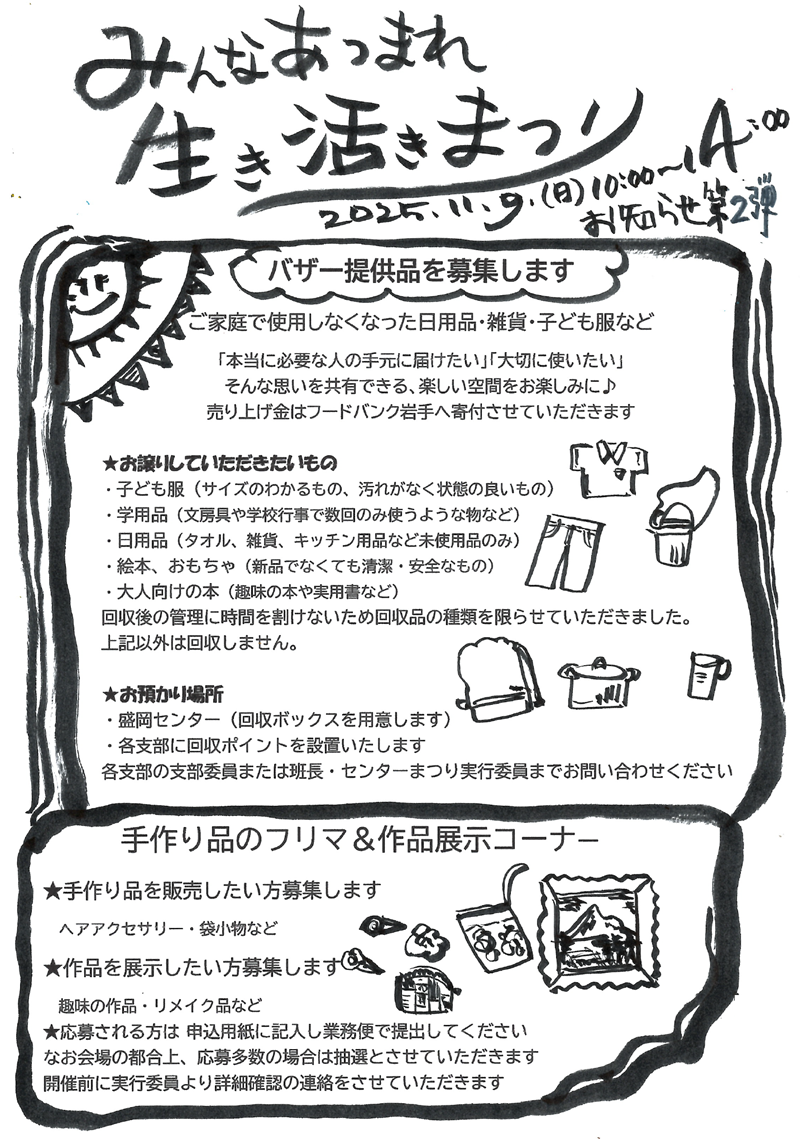 みんなあつまれ
生き活きまつり
2025.11.9.(日)10:00~14:00
お知らせ第2弾
バザー提供品を募集します
ご家庭で使用しなくなった日用品・雑貨・子ども服など
「本当に必要な人の手元に届けたい」「大切に使いたい」
そんな思いを共有できる、楽しい空間をお楽しみに♪
売り上げ金はフードバンク岩手へ寄付させていただきます
★お譲りしていただきたいもの
・子ども服（サイズのわかるもの、汚れがなく状態の良いもの）
・学用品（文房具や学校行事で数回のみ使うような物など）
・日用品（タオル、雑貨、キッチン用品など未使用品のみ）
・絵本、おもちゃ（新品でなくても清潔・安全なもの）
・大人向けの本（趣味の本や実用書など）
回収後の管理に時間を割けないため回収品の種類を限らせていただきました。
上記以外は回収しません。
★お預かり場所
・盛岡センター（回収ボックスを用意します）
・各支部に回収ポイントを設置いたします
各支部の支部委員または班長・センターまつり実行委員までお問い合わせください
手作り品のフリマ＆作品展示コーナー
★手作り品を販売したい方募集します
ヘアアクセサリー・袋小物など
★作品を展示したい方募集します
趣味の作品・リメイク品など
★応募される方は 申込用紙に記入し業務便で提出してください
なお会場の都合上、応募多数の場合は抽選とさせていただきます
開催前に実行委員より詳細確認の連絡をさせていただきます